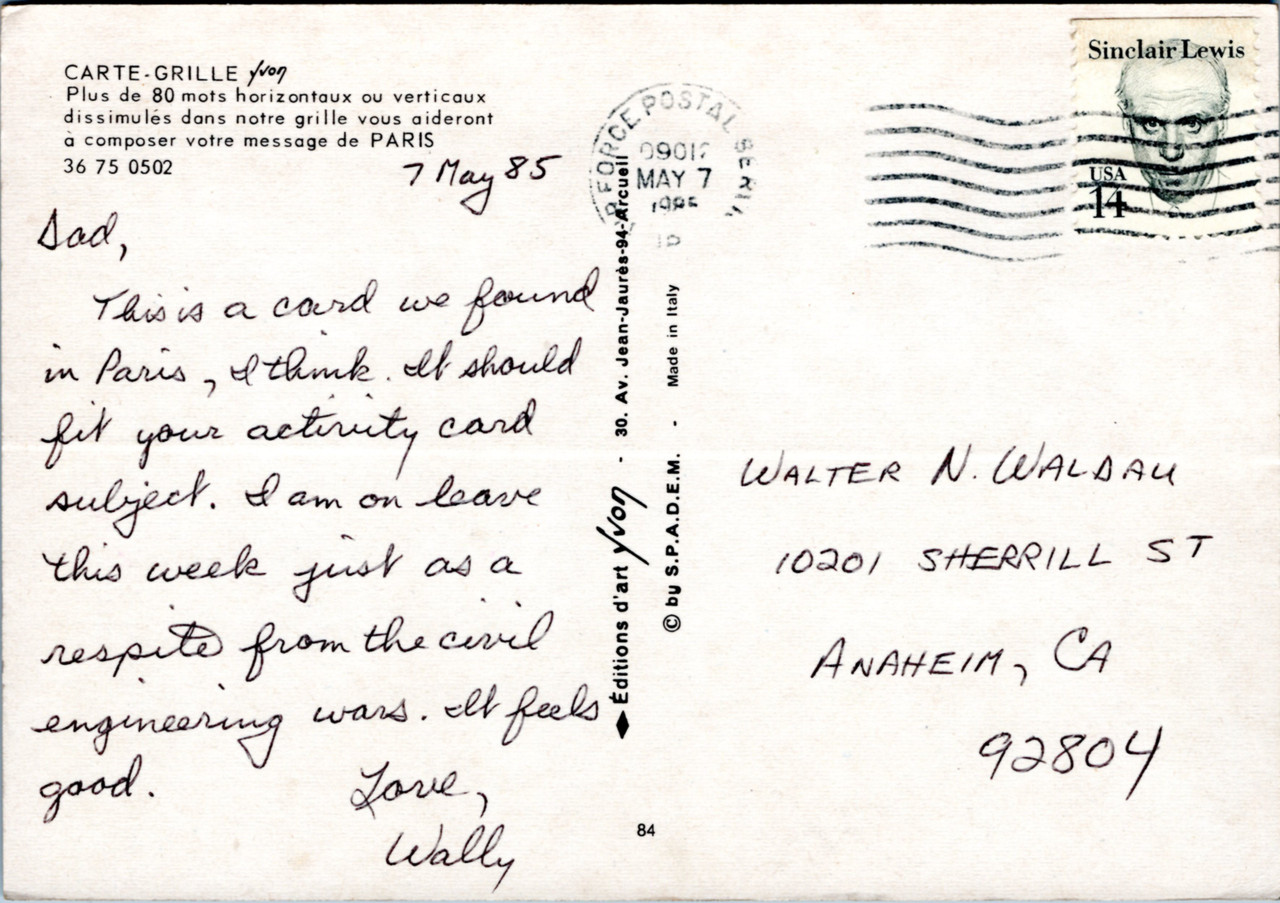 CARTE-GRILLE Yvon
Plus de 80 mots horizontaux ou verticaux
dissimulés dans notre grille vous aideront
à composer votre message de PARIS
36 75 0502
7 May 85
Dad,
This is a card we found
in Paris, I think. It should
fit your activity card
subject. I am on leave
this week just as a
respite from the civil
engineering wars. It feels
good.
Love,
Wally
Éditions d'art Yvon - 30. Av. Jean-Jaurès-94-Arcueil
© by S.P.A.D.E.M. - Made in Italy
84
FORCE POSTAL
MAY 7
1985
Sinclair Lewis
USA
14
WALTER N. WALDAU
10201 SHERRILL ST
ANAHEIM, CA
92804